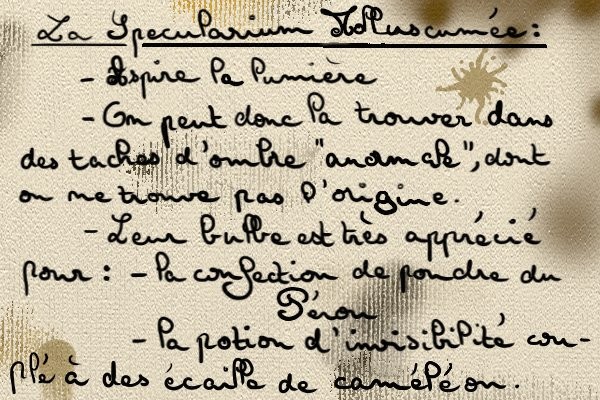 La Specularium
- Aspire la lumière
- On peut donc la trouver dans
des taches d'ombre "anormale", dont
on ne trouve pas l'origine.
- Leur bulbe est très apprécié
pour : - la confection de poudre du
Pérou
- la potion d'invisibilité cou-
plé à des écaille de caméléon.